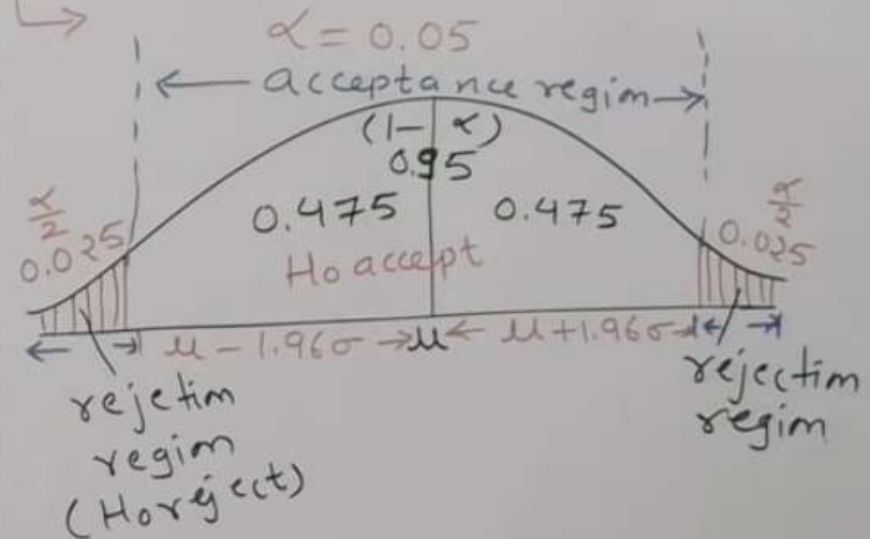 α = 0.05
acceptance regim
(1- α)
0.95
α/2
0.025
0.475
0.475
α/2
0.025
Ho accept
μ - 1.96σ
μ
μ + 1.96σ
rejetim
regim
(Ho reject)
rejectim
regim